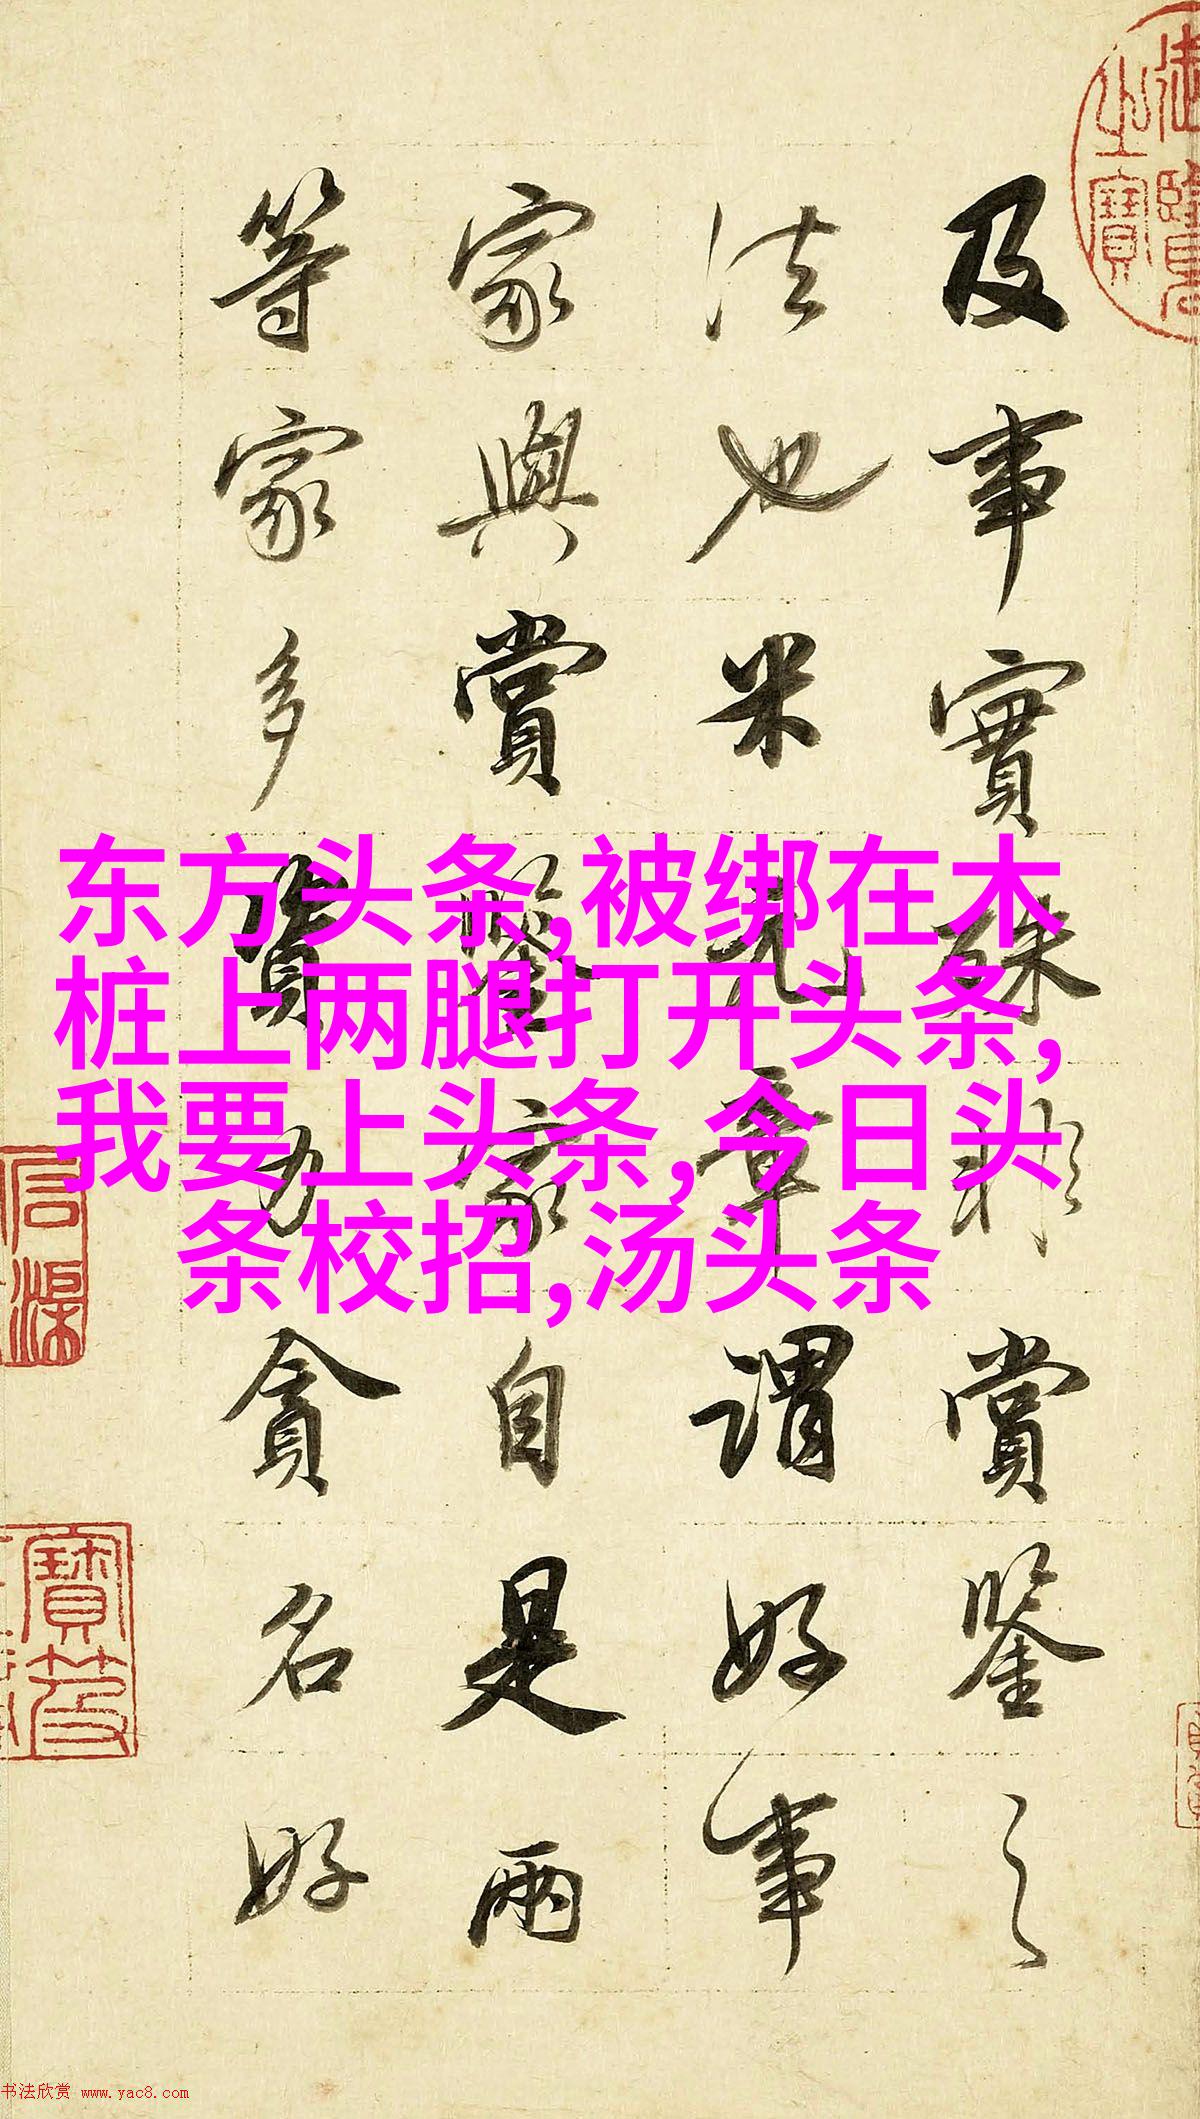 东方头条,被绑在木
桩上两腿打开头条,
我要上头条,今日头
条校招,汤头条
及事實殊非賞鑒之
法也米元章謂好事
家與賞鑒家自是兩
等家多資力貪名好
御覽之寶
寶笈
书法欣赏 www.yac8.com